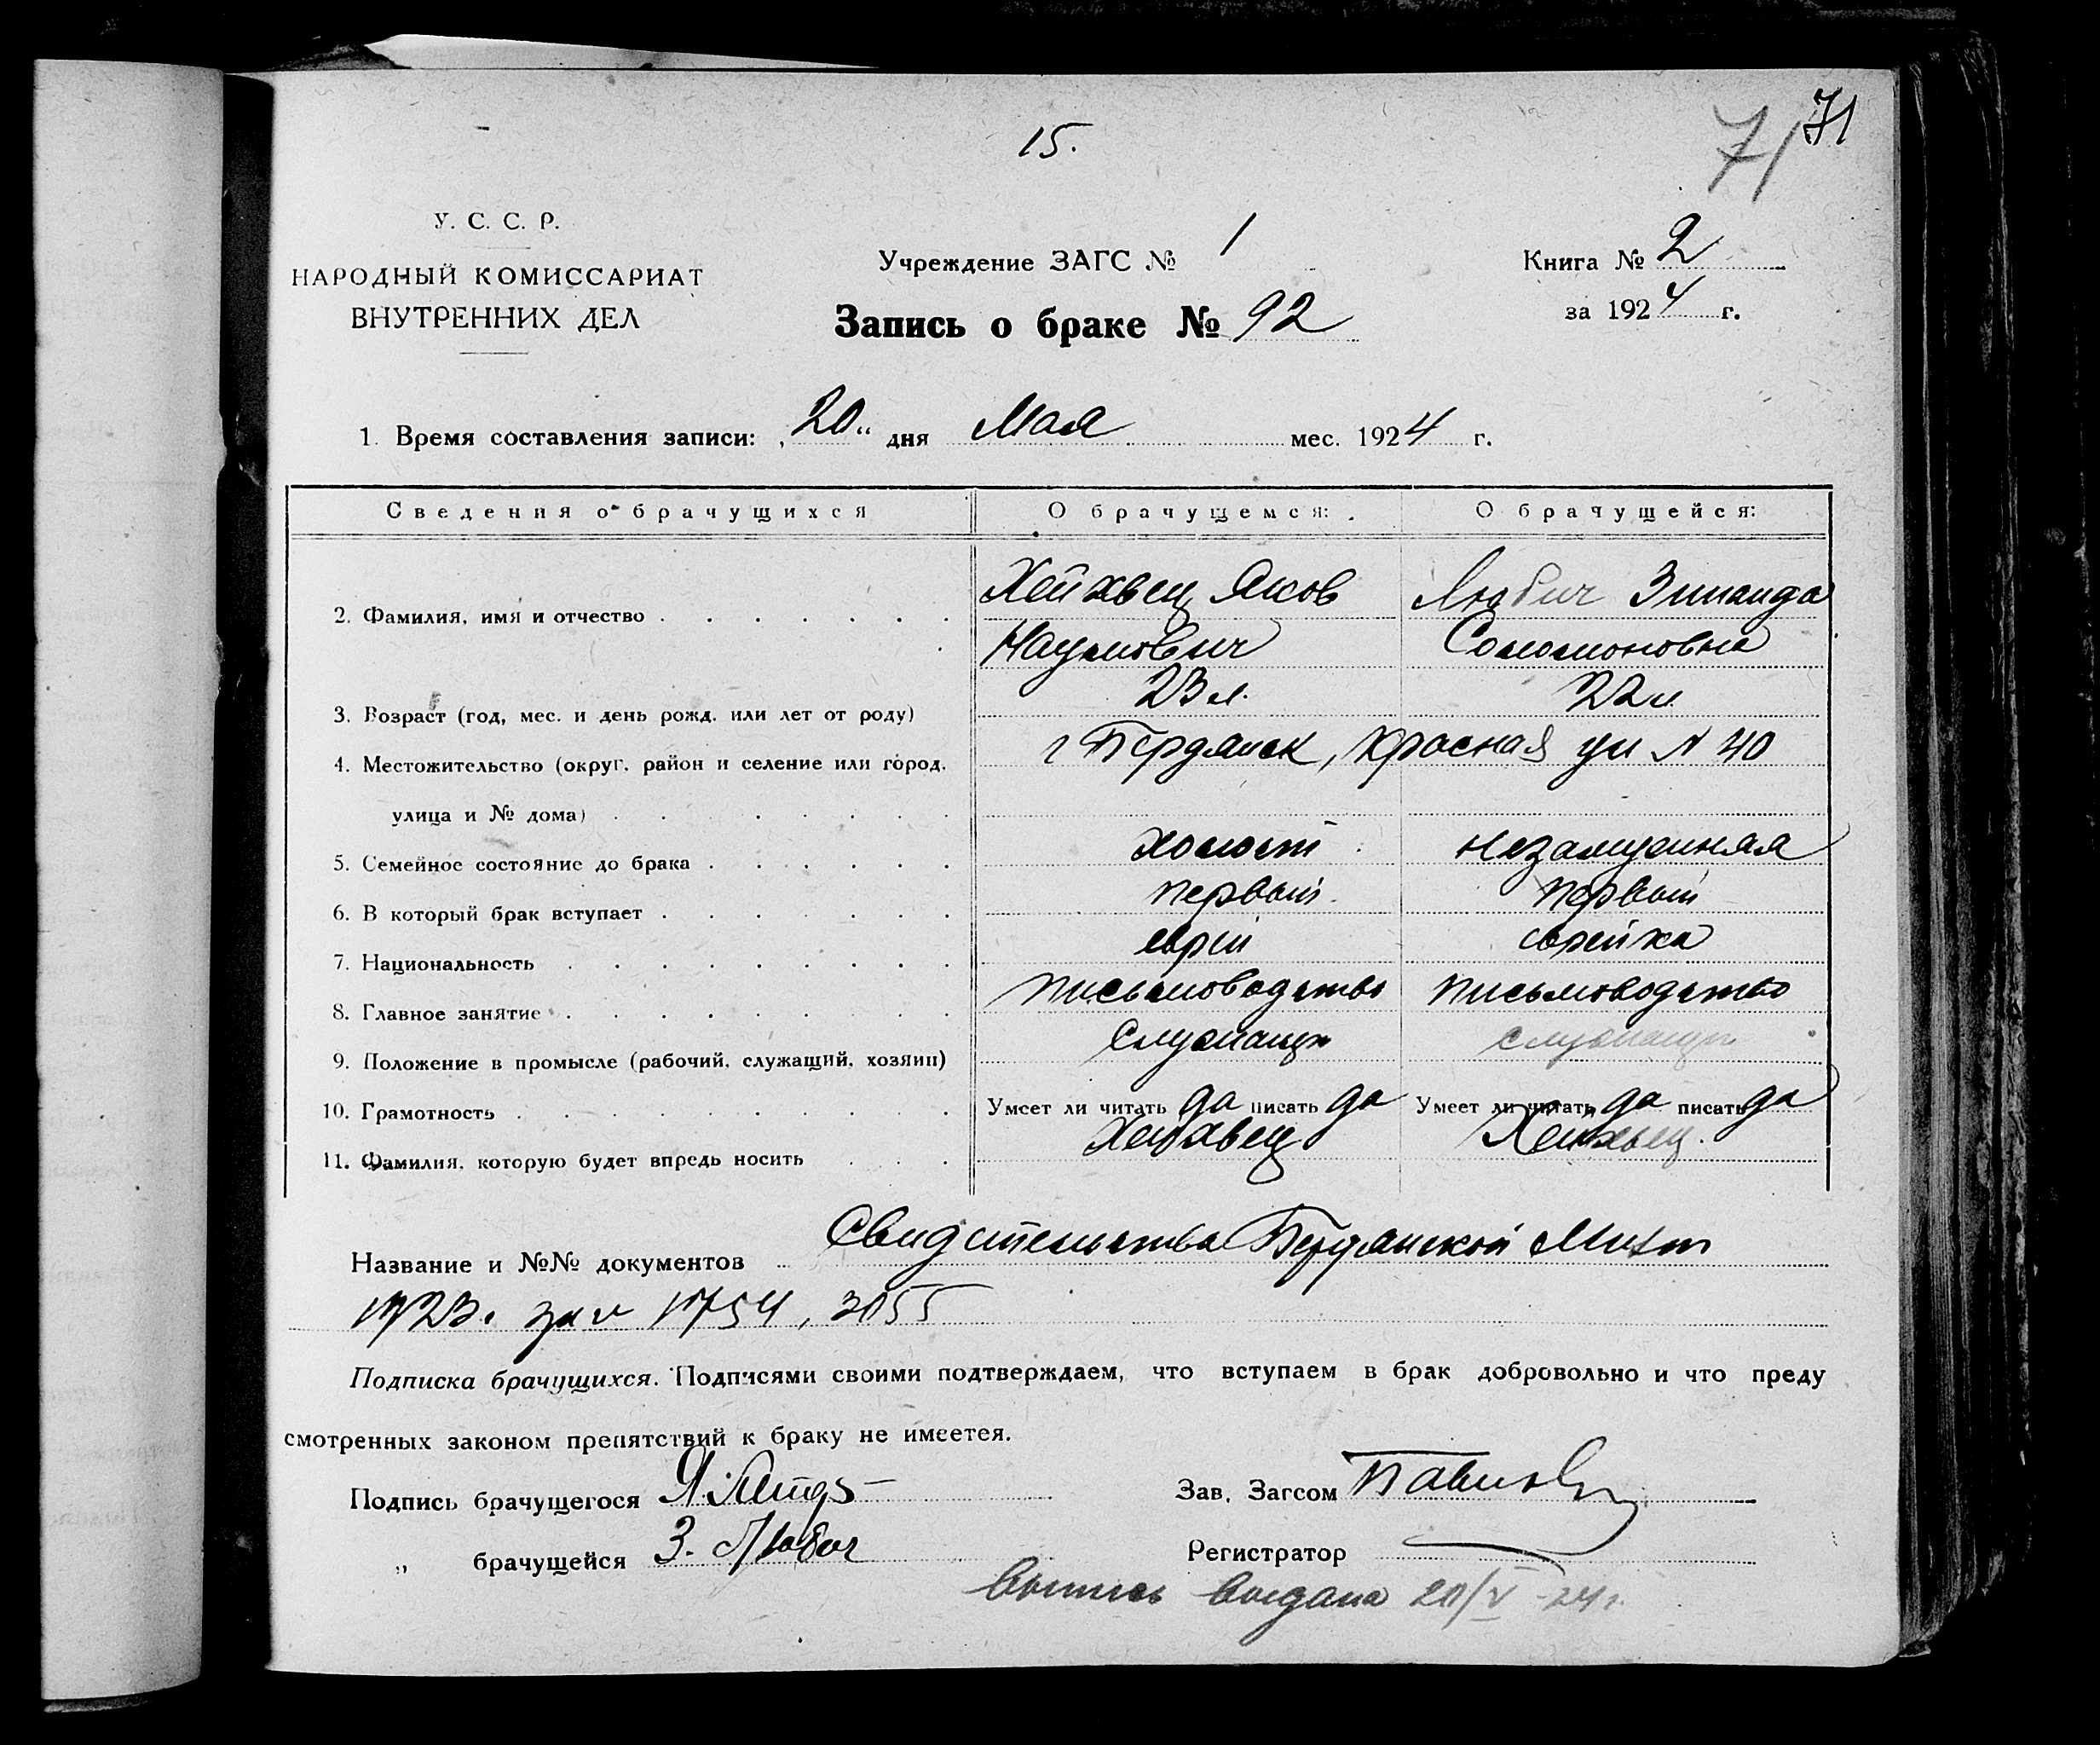 15.
71
71
У. С. С. Р.
НАРОДНЫЙ КОМИССАРИАТ
ВНУТРЕННИХ ДЕЛ
Учреждение ЗАГС № 1
Книга № 2
Запись о браке № 92
за 1924 г.
1. Время составления записи: „20“ дня Мая мес. 1924 г.
Сведения о брачущихся О брачущемся: О брачущейся:
2. Фамилия, имя и отчество Хейхвец Яков Любич Зинаида
Наумович Соломоновна
3. Возраст (год, мес. и день рожд. или лет от роду) 23 л. 22 л.
4. Местожительство (округ, район и селение или город, г Бердянск, Красная ул N 40
улица и № дома)
5. Семейное состояние до брака холост незамужняя
6. В который брак вступает первый первый
7. Национальность еврей еврейка
8. Главное занятие письмоводство письмоводство
9. Положение в промысле (рабочий, служащий, хозяин) служащи служащи
10. Грамотность Умеет ли читать да писать да Умеет ли читать да писать да
11. Фамилия, которую будет впредь носить Хейхвец Хейхвец.
Название и №№ документов Свидетельства Бердянской
1923г. за 1754, 3055
Подписка брачущихся. Подписями своими подтверждаем, что вступаем в брак добровольно и что преду
смотренных законом препятствий к браку не имеется.
Подпись брачущегося Я.
Зав. Загсом
„ брачущейся З. Любич
Регистратор
Выпись выдана 20/V-24г.